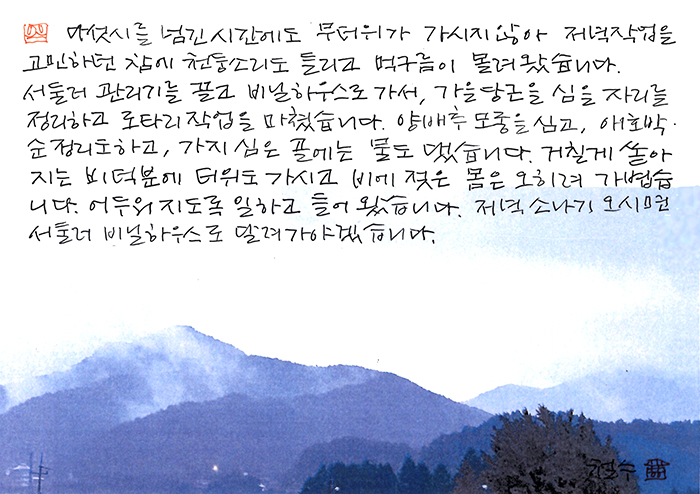 다섯시를 넘긴 시간에도 무더위가 가시지 않아 저녁작업을
고민하던 참에 천둥소리도 들리고 먹구름이 몰려왔습니다.
서둘러 관리기를 끌고 비닐하우스로 가서, 가을당근을 심을 자리를
정리하고 로타리작업을 마쳤습니다. 양배추 모종을 심고, 애호박.
순정리도하고, 가지 심은 골에는 물도 댔습니다. 거칠게 쏟아
지는 비덕분에 더위도 가시고 비에 젖은 몸은 오히려 가볍습
니다. 어두워지도록 일하고 들어왔습니다. 저녁 소나기 오시면
서둘러 비닐하우스로 달려가야겠습니다.